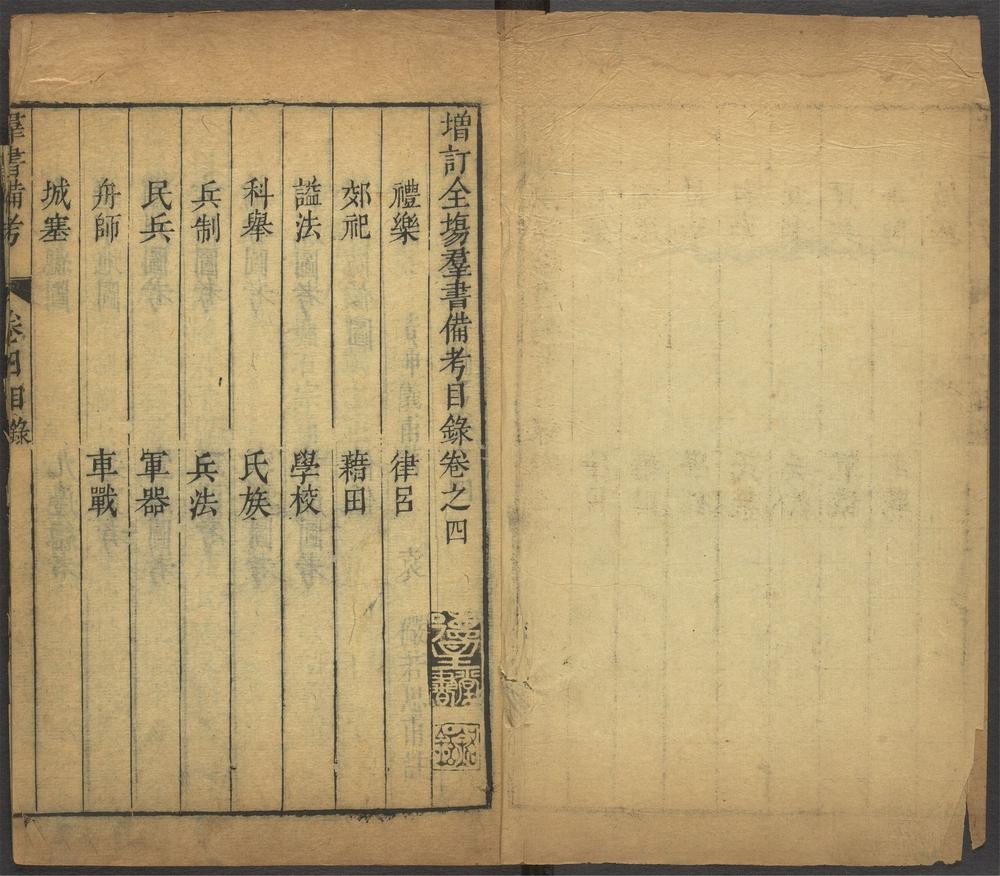 增訂全塲羣書備考目錄卷之四
禮樂 律呂
郊祀 藉田
諡法 學校
科舉 氏族
兵制 兵法
民兵 軍器
舟師 車戰
城塞
羣書備考 卷四目錄